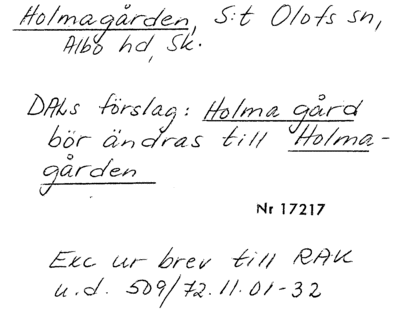 Holmagården, S:t Olofs sn,
Albo hd, Sk.
DALs förslag: Holma gård
bör ändras till Holma-
gården
Nr 17217
Exc ur brev till RAK
u.d. 509/72.11.01-32